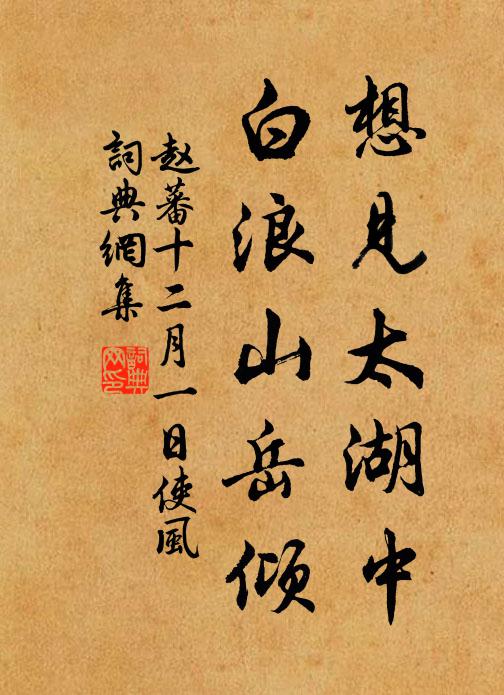 想見太湖中
白浪山岳傾
赵蕃十二月一日使風
詞典網集
詞典網印